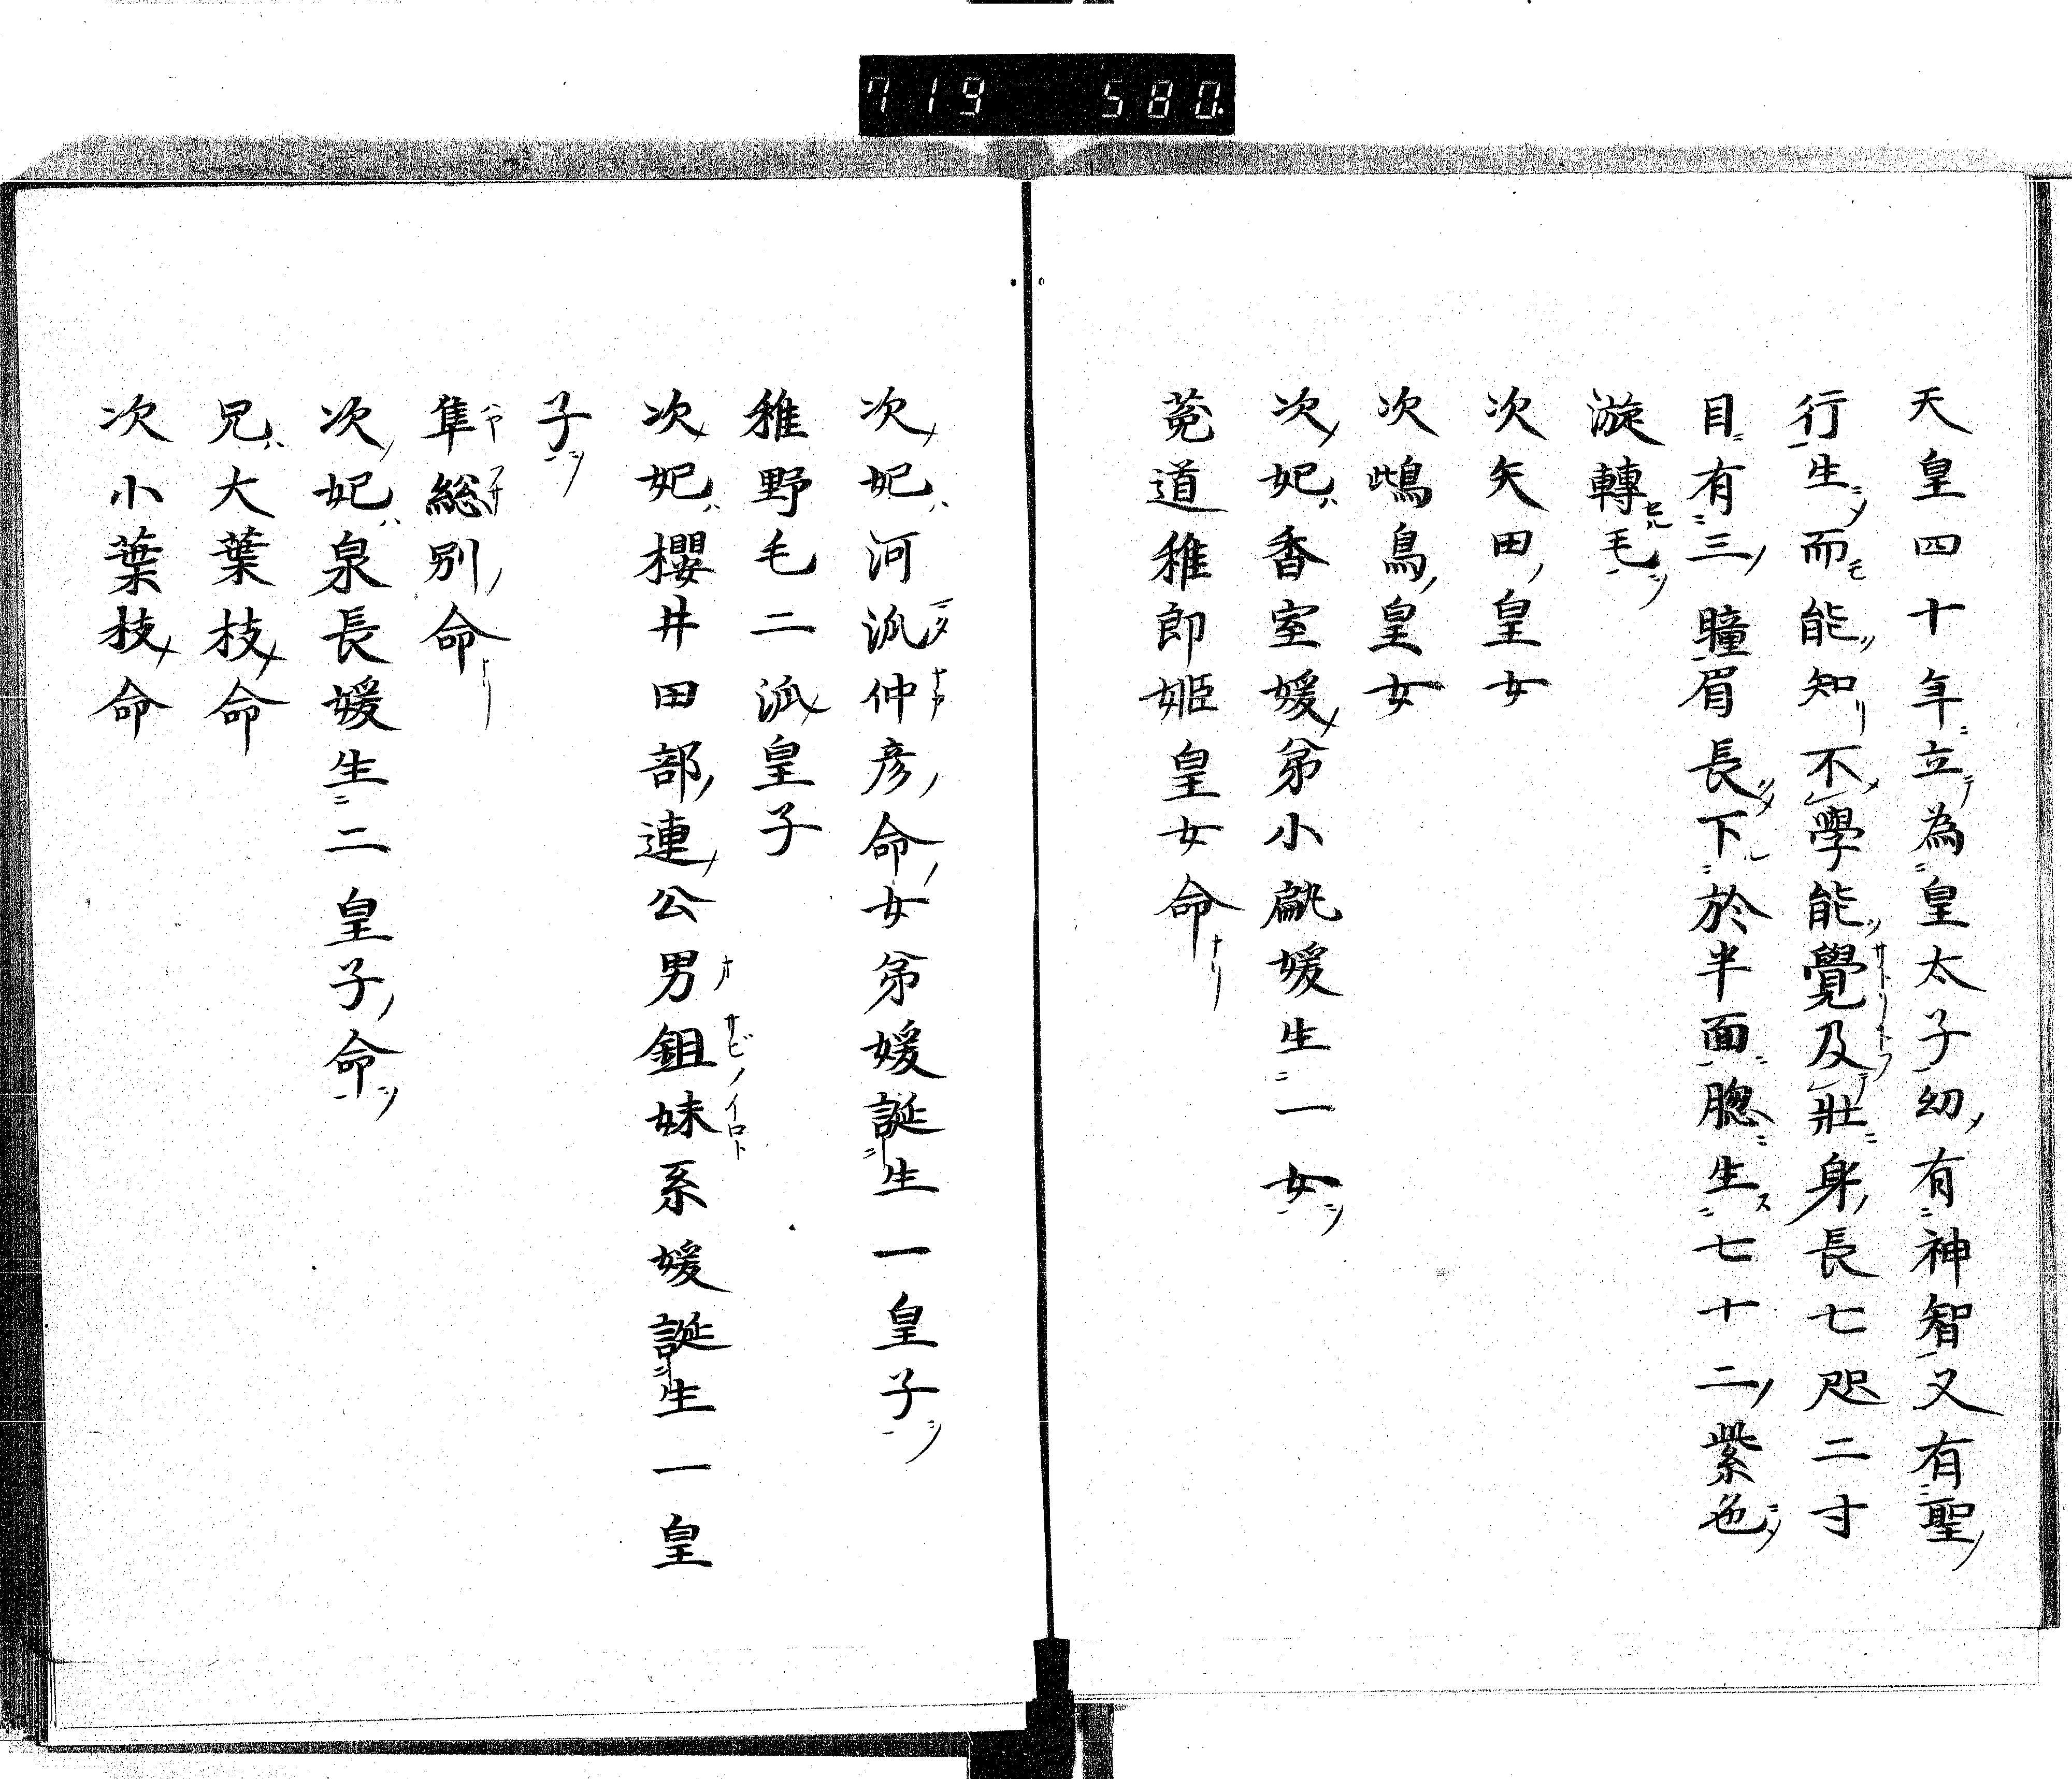 719 580.
天皇四十年立為皇太子幼有神智又有聖
行生而能知不學能覺及壯身長七咫二寸
目有三瞳眉長下於半面腮生七十二紫色
漩轉毛
次矢田皇女
次鴟鳥皇女
次妃香室媛弟小甂媛生一女
菟道稚郎姬皇女命
次妃河泒仲彦命女弟媛誕生一皇子
稚野毛二泒皇子
次妃櫻井田部連公男鉏妹糸媛誕生一皇
子
隼総別命
次妃泉長媛生二皇子命
兄大葉枝命
次小葉枝命